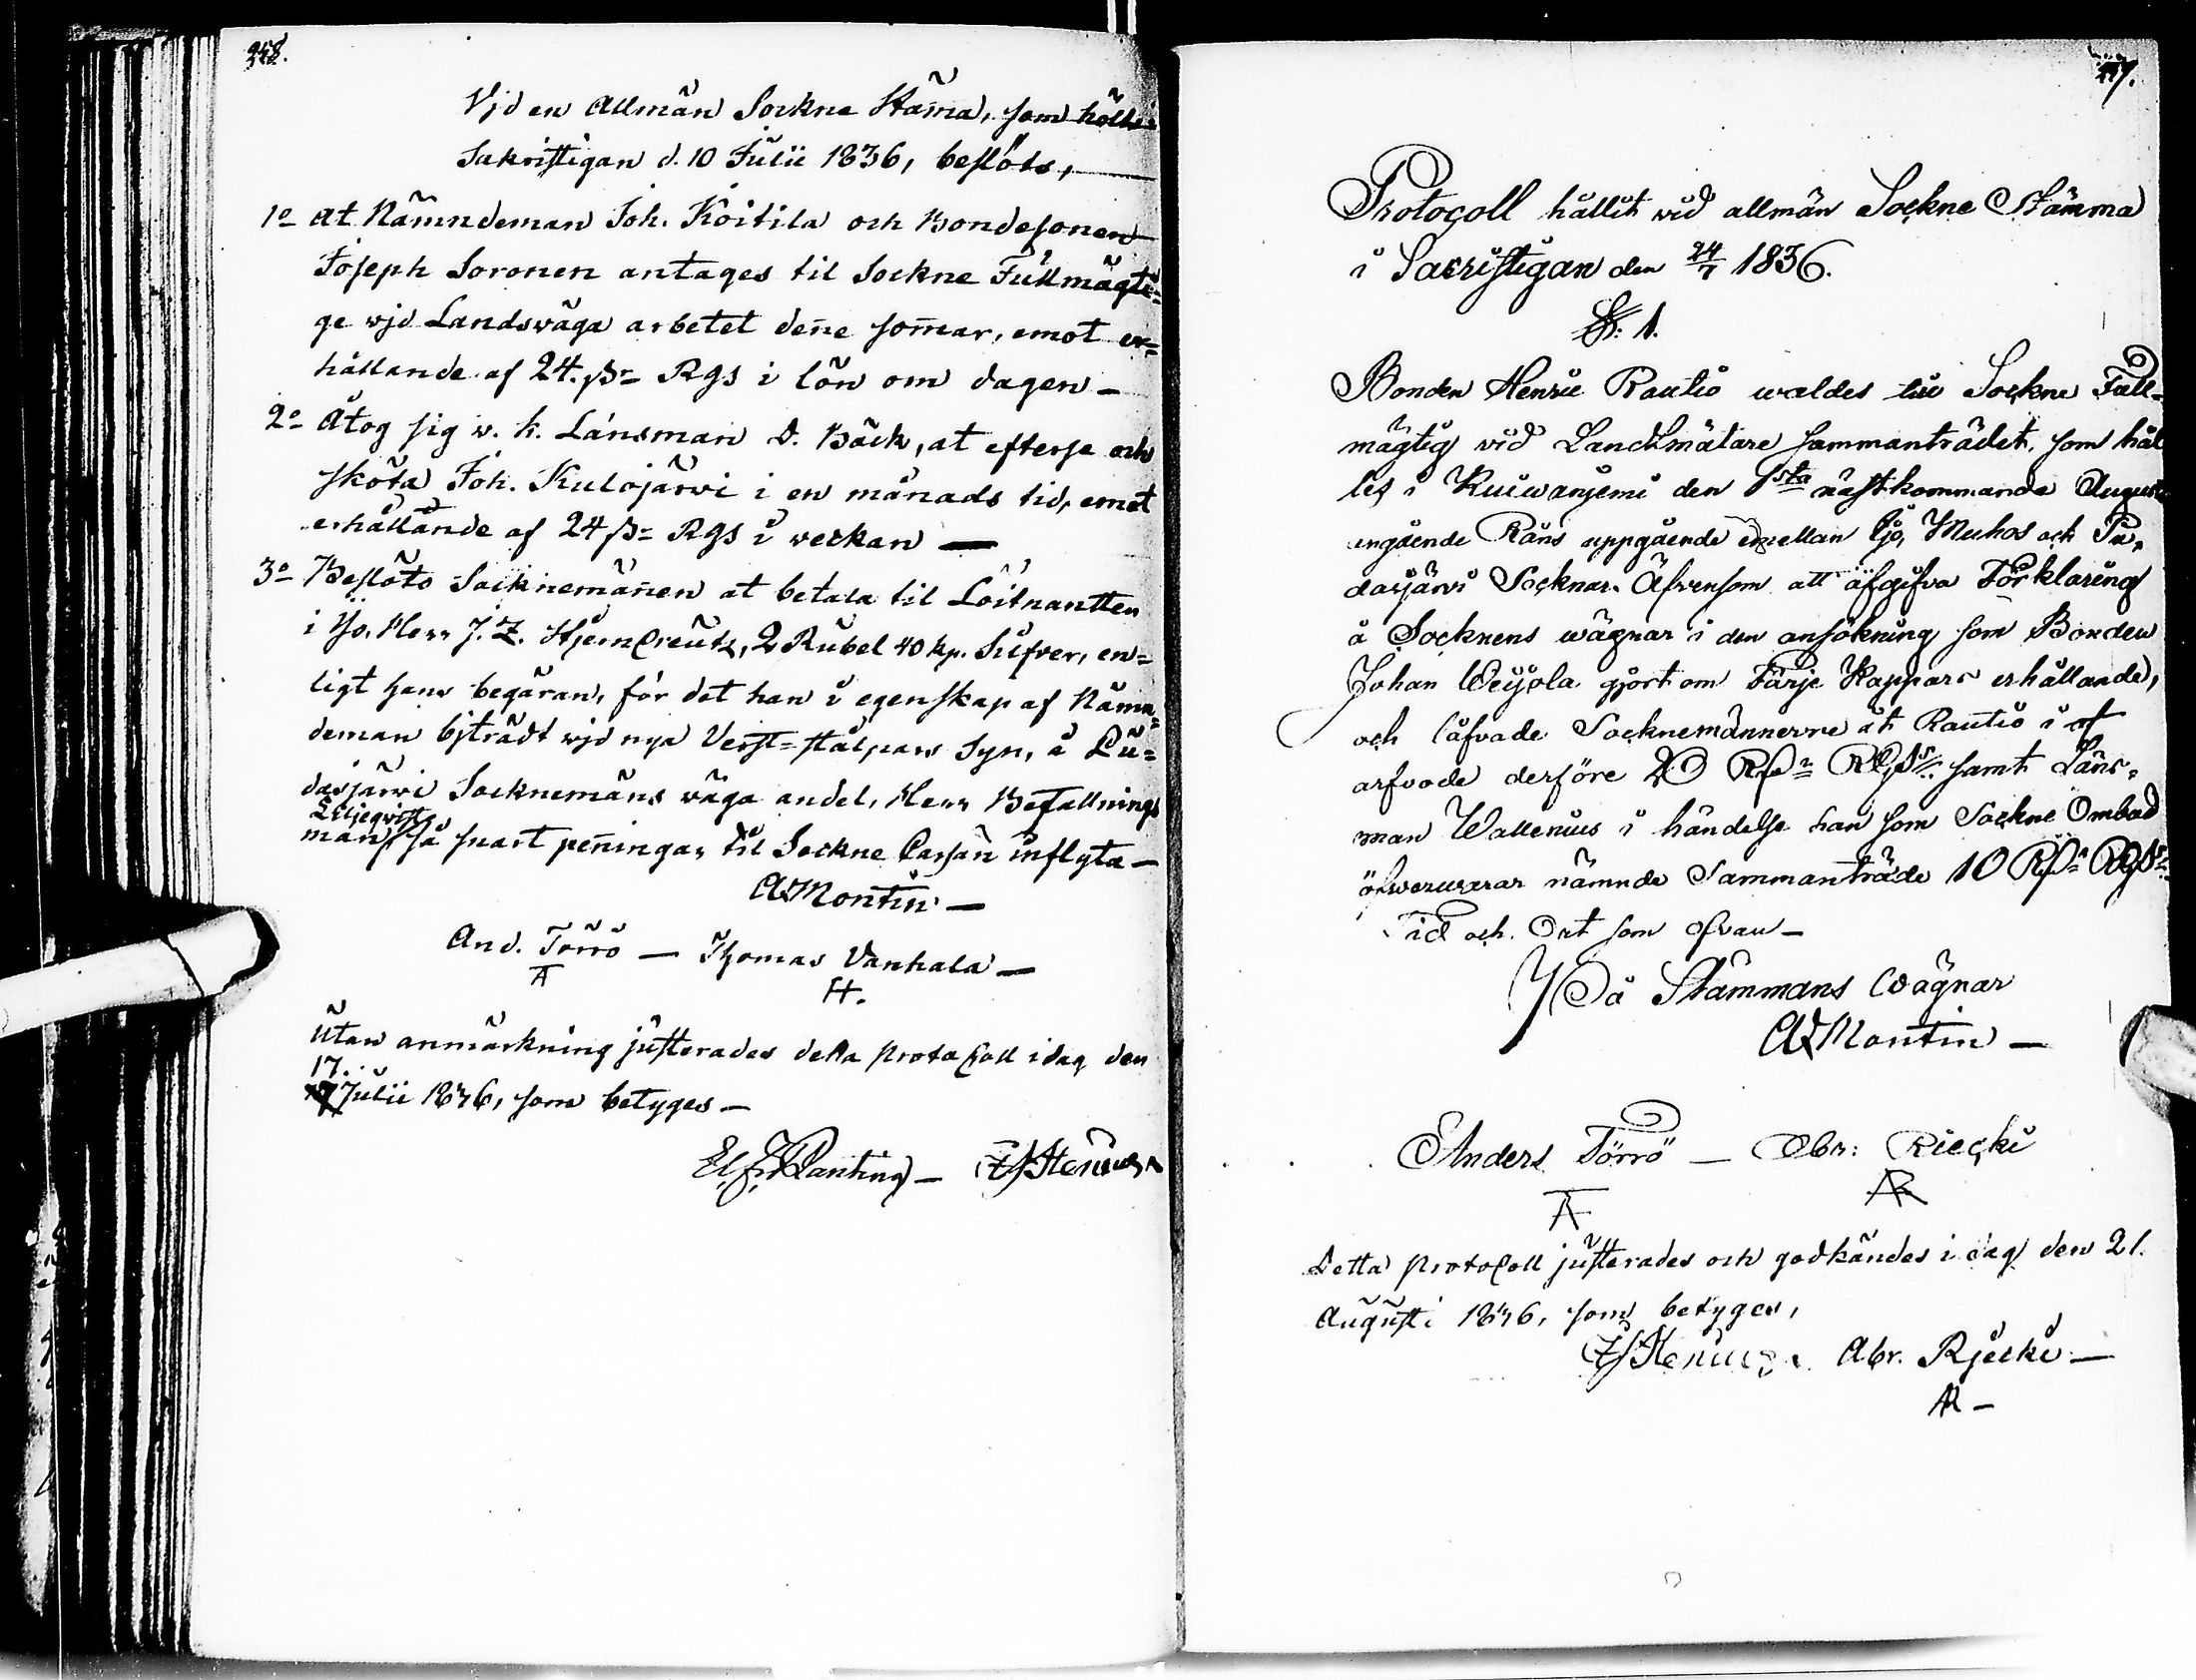 Vjd en Allmän Sockne Stäm̄a, som hölts i
Sakristigan d. 10 Julii 1836, beslöts,
1o at Nämndeman Joh. Koitila och Bondesonen
Joseph Soronen antages til Sockne Fullmägti=
ge wjd Landswäga arbetet den̄e som̄ar, emot er=
hållande af 24. ßr Rgs i lön om dagen —
2o Åtog sig v. k. Länsman D. Bäck, at efterse och
sköta Joh. Kulojärwi i en månads tid, emot
erhållande af 24 ßr Rgs i weckan —
3o Beslöto Socknemän̄en at betala til Löitnantten
i Ijo, Herr J. Z. Stjerncreutz, 2 Rubel 40 kp. Silfver, en=
ligt hans begäran, för det han i egenskap af Nämn=
deman bjträdt wjd nya Verst=stålpars Syn, å Pu=
dasjärwi Socknemäns wäga andel, Herr Befallnings
Liljeqvist
man, så snart pen̄ingar til Sockne Cassan inflyta —
A Montin —
And. Törrö — Thomas Vanhala —
A H.
Utan anmärkning justerades detta protocoll idag den
17.
Julii 1836, som betyges —
Protocoll hållit wid allmän Sockne Stämma
i Sacristigan den 24/7 1836.
§: 1.
Bonden Henric Rautio waldes till Sockne Full-
mägtig vid Landtmätare sammanträdet, som hål
les i Kuiwaniemi den 1sta nästkommande Augusti
angående Rårs uppgående emellan Ijo, Muhos och Pu=
dasjärvi Socknar. Äfvensom att afgifva Förklaring
å Socknens wägnar i den ansökning som Bonden
Johan Weijola gjort om Färje Kappars erhållande,
och låfvade Socknemännerne åt Rautio i af
arfvode derföre 20 Rßr RGSr samt Läns=
man Wallenius i händelse han som Sockne Ombud
öfwerwarar nämnde Sammanträde 10 Rßr RGSr
Tid och Ort som ofvan —
På Stämmans Wägnar
A Montin —
Anders Törrö — Abr: Riecki
A AR
Detta protocoll justerades och godkändes i dag den 21.
Augusti 1836, som betyges,
Abr. Rjecki —
AR —